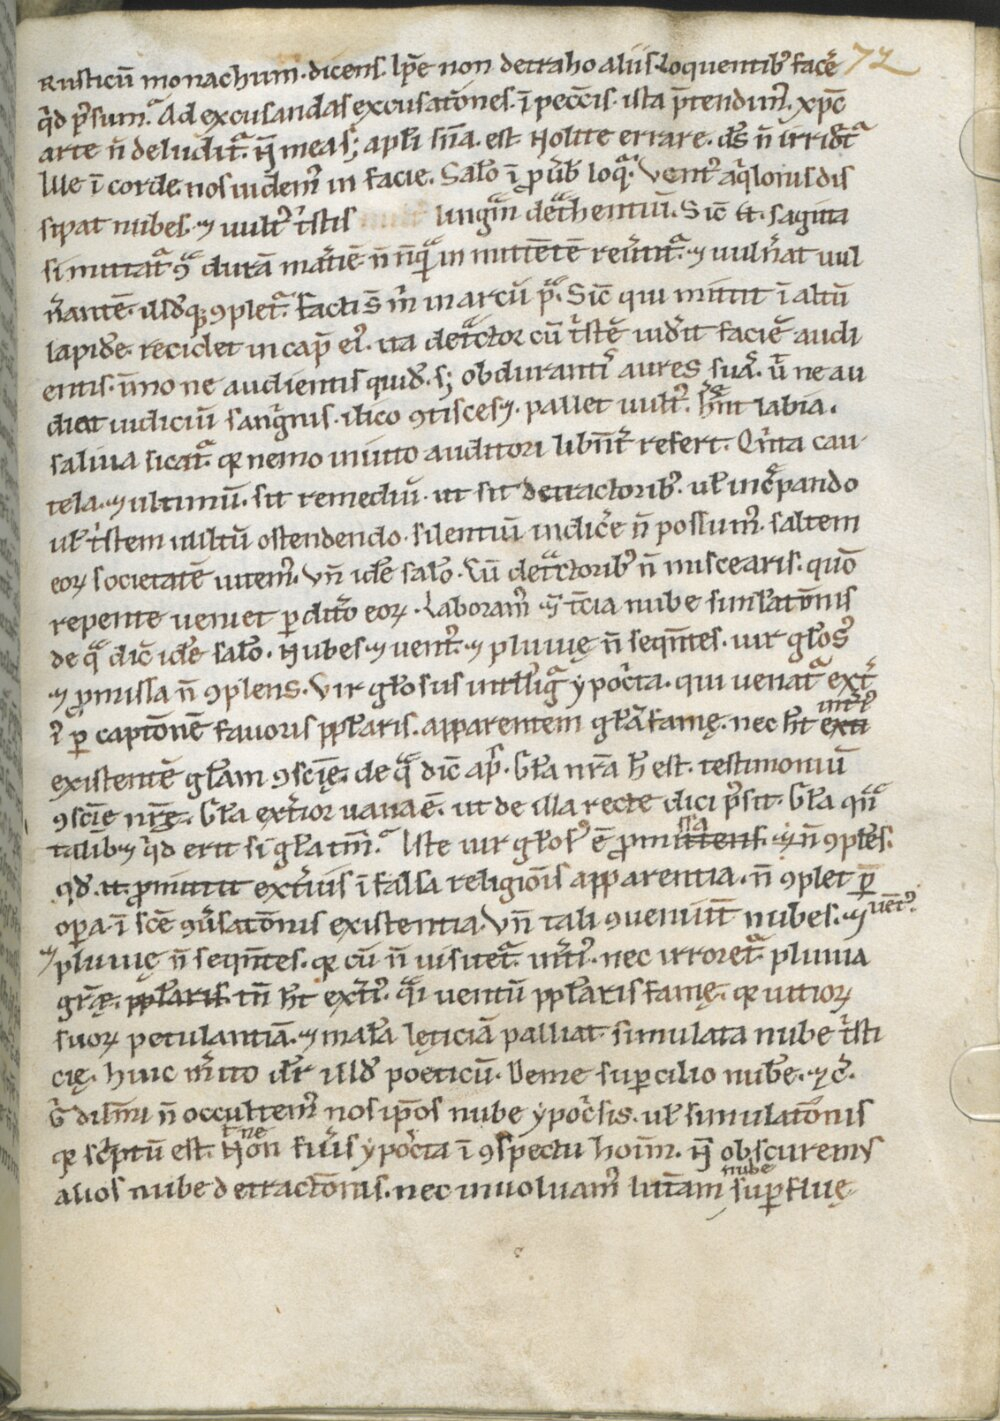 72
Rusticū monachum. dicens. Ip̄e non detraho aliis. Loquentibꝰ facē
q̇d p̄sum. Ad excusandas excusatōnes. ī pecc̄is. ista p̄tendimꝰ. xp̄c
arte n̄ deludit᷑. H̄ mea s; apl̄i sn̄a. est. Nolite errare. d̄s n̄ irridet᷑
Ille ī corde. nos uidemꝰ in facie. Salō ī ꝓuerb̄ loq᷑. Ventꝰ aq̇lonis dis
sipat nubes. ⁊ uultꝰ tⁱstis linguā det̾hentiū. Sic̄ .n̄. sagitta
si mittat᷑ ꝯ durā mat̾iē n̄ nūq̃ in mittētē reu̾tit᷑. ⁊ uuln̾at uul
n̾antē. illd̄q; ꝯplet᷑. facti s̄ m̄ in arcū p̾. Sic̄ qui mittit ī altū
lapidē. recidet in cap̄ eiꝰ. ita det̾ctor cū tⁱstē uid̾it faciē audi
entis. īmo ne audientis quidē. s; obdurantⁱ aures suas. ū ne au
diat iudiciū sangⁱnis. ilico ꝯtisces⁊. pallet uultꝰ. h̾nt labia.
saliua sicat᷑. q̄ nemo inuito auditori libn̄t᷑ refert. Qⁱnta cau
tela. ⁊ ultimū. sit remediū. ut si detractoribꝰ. ul̄ inc̾pando
ul̄ tⁱstem uultū ostendendo. silentiū indic̾e n̄ possumꝰ. saltem
eoꝝ societatē uitemꝰ. Vn̄ idē salō. Cū det̾ctoribꝰ n̄ miscearis. quō
repente ueniet ꝑditō eoꝝ. Laboramꝰ ⁊ t̾cia nube simlatōnis
de q̾ dic̄ idē salō. Nubes. ⁊ uentꝰ. ⁊ pluuię n̄ seqn̄tes. uir gl̄osꝰ
⁊ ꝓmissa n̄ ꝯplens. Vir gl̄osus intll̄igit᷑ ypoc̾ita. qui uenat᷑ ext̾
iꝰ ꝑ captōnē fauoris ppl̄aris. apparentem gl̄ā famę. nec ht̄ exti int̾iꝰ
existentē gl̄am ꝯsciē. de q̾ dic̄ ap̄s. Gl̄a nr̄a h̄ est. testimoniū
ꝯsciē nr̄ę. Gl̄a ext̾ior uana ē. ut de illa recte dici p̄sit. Gl̄a qn̄
talib; ⁊ q̇d erit si gl̄a tm̄. Iste uir gl̄osꝰ ē ꝓmittens. ssa ⁊ n̄ ꝯplēs.
qd̄ .n̄. ꝓmittit ext̾ius ī falsa religiōis apparentia. n̄ ꝯplet ꝑ
oꝑa. ī scē ꝯu̾satōnis existentia. Vn̄ tali ꝯueniūt nubes. ⁊ uētꝰ.
⁊ pluuię n̄ seqn̄tes. q̄ cū n̄ uisitet᷑ int̾iꝰ. nec irroret᷑ pluuia
gr̄ę. ppl̄aris. tn̄ ht̄ ext̾iꝰ. q̾i uentū ppl̄aris famę. q̄ uitioꝝ
suoꝝ petulantiā. ⁊ malā lęticiā palliat. simulata nube tⁱsti
cię. huic m̾ito dr̄ illd̄ poeticū. Deme suꝑcilio nubē. ⁊ c̾.
G̊ dil̄mi n̄ occultemꝰ nos ip̄os nube ypoc̾sis. ul̄ simulatōnis
q̄ sc̾ptū est. Non t ne fu̾is ypoc̾ita ī ꝯspectu hoīm. N̄ obscuremꝰ
alios nube detractōnis. nec inuoluamꝰ uitam nube suꝑfluę